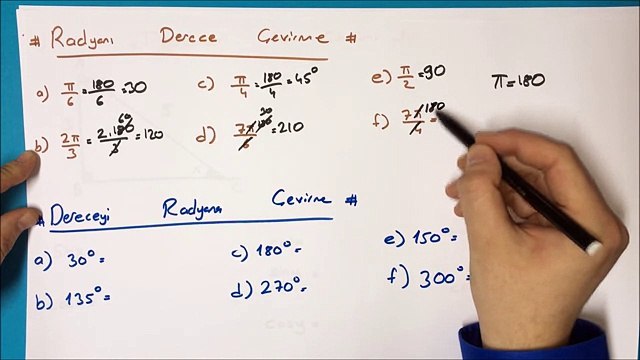 # Radyanı Derece Çevirme #
a) π/6 = 180/6 = 30
c) π/4 = 180/4 = 45°
e) π/2 = 90
π = 180
b) 2π/3 = 2.180/3 = 120
60
d) 7π/6 = 210
180
30
f) 7π/4 =
180
# Dereceyi Radyana Çevirme #
a) 30° =
c) 180° =
e) 150° =
b) 135° =
d) 270° =
f) 300° =